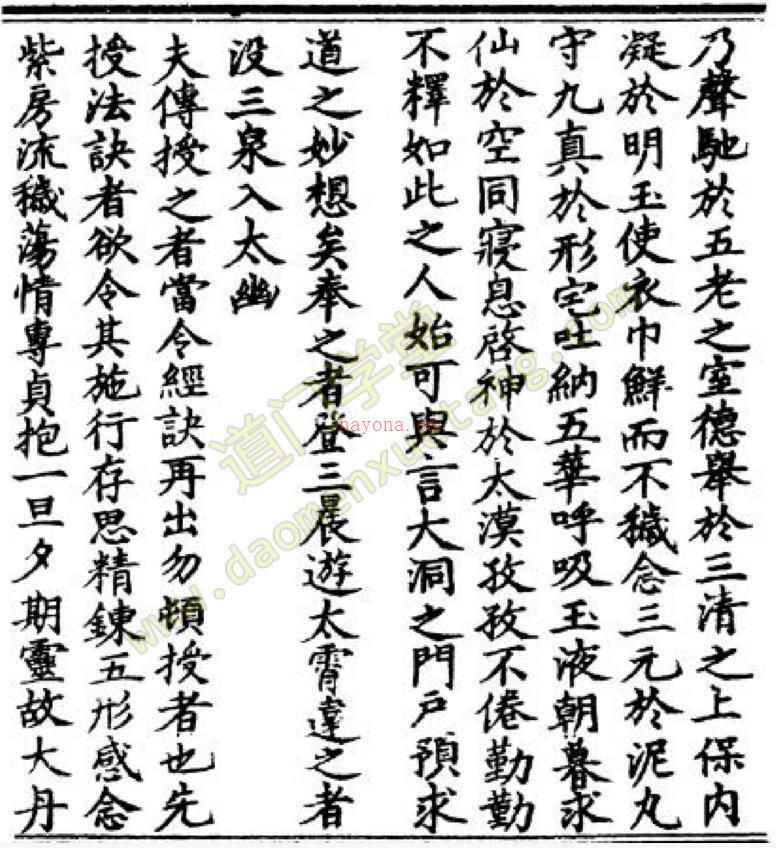 乃聲馳於五老之室德舉於三清之上保内
凝於明玉使衣巾鮮而不穢念三元於泥丸
守九真於形宅吐納五華呼吸玉液朝暮求
仙於空同寢息啓神於太漠孜孜不倦勤勤
不釋如此之人始可與言大洞之門戶預求
道之妙想矣奉之者登三晨遊太霄違之者
没三泉入太幽
夫傳授之者當令經訣再出勿頓授者也先
授法訣者欲令其施行存思精鍊五形感念
紫房流穢蕩情專貞抱一旦夕期靈故大丹
道门学堂
www.daomenxuetang.com